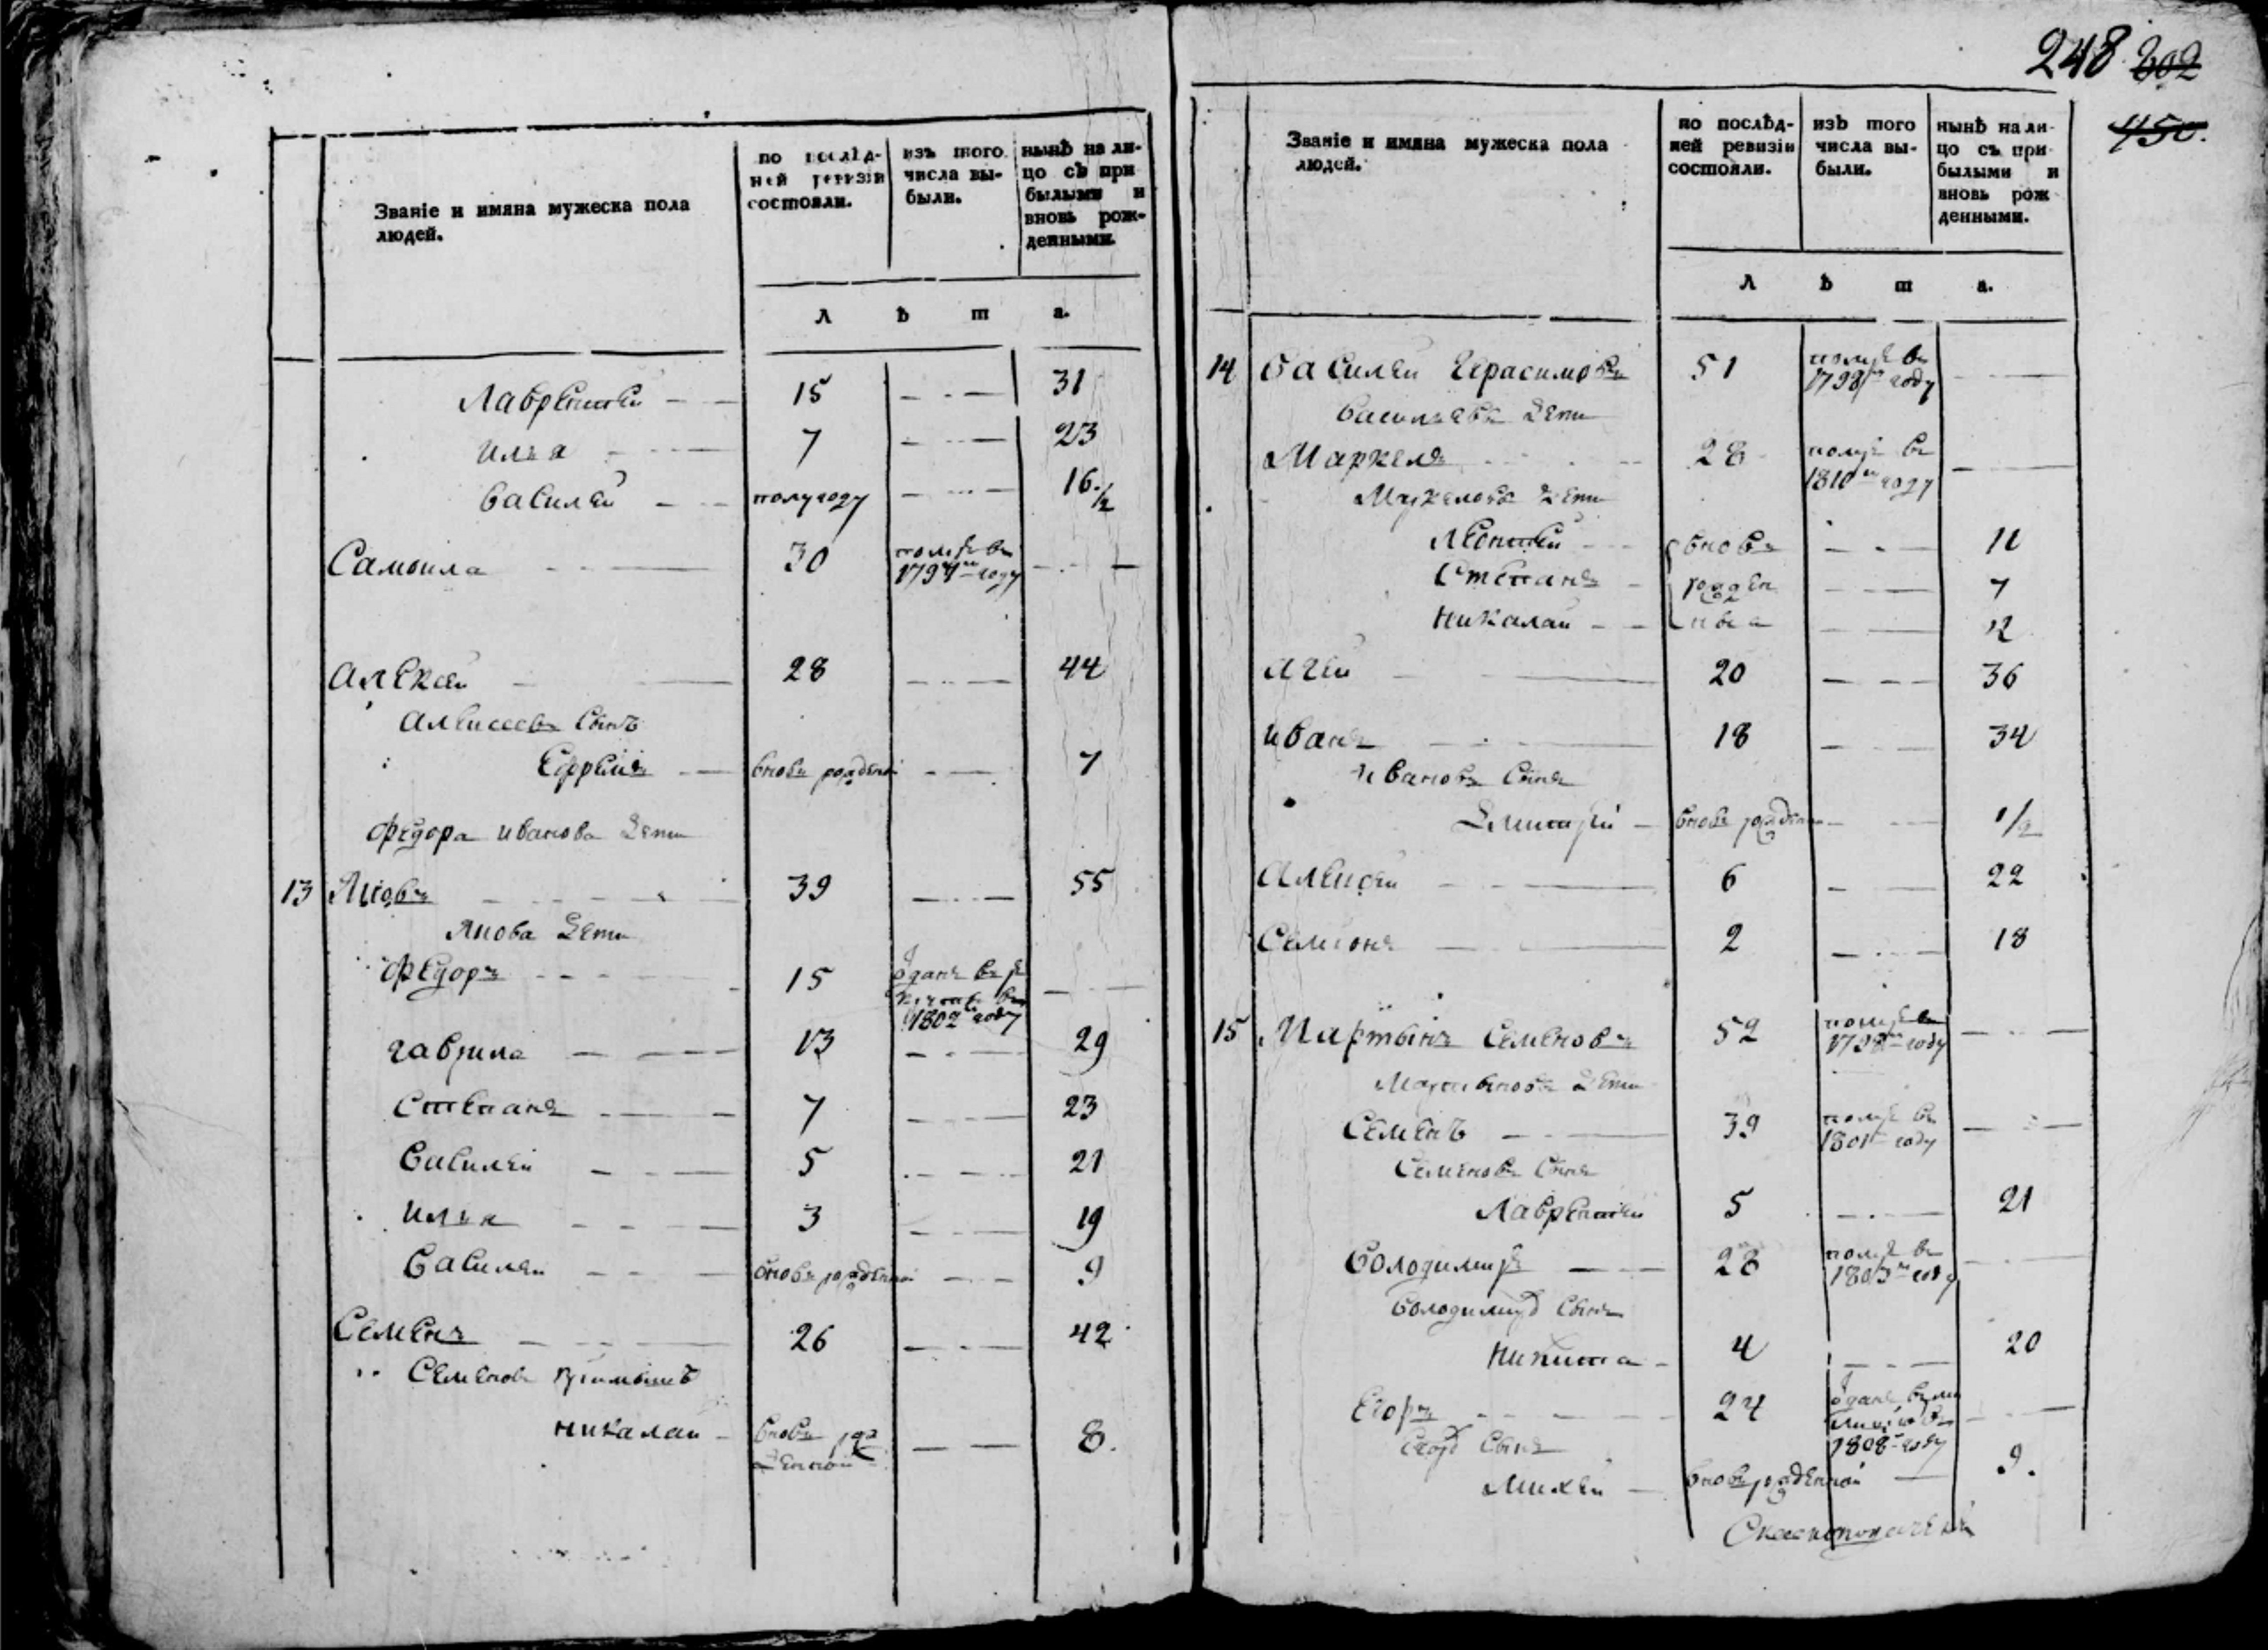 248 802
450.
Званіе и имяна мужеска пола
людей.
по послѣд-
ней ревизіи
состояли.
изъ того
числа вы-
были.
нынѣ на ли-
цо съ при
былыми и
вновь рож-
денными.
л ѣ т а.
Лаврентей 15 31
Илья 7 23
Василей полугоду 16 1/2
Самоила 30 помре въ
году
Алексей 28 44
Алексеевъ сынъ
Ефремъ вновь рожденой 7
Федора Иванова дети
13 Иовъ 39 55
Иова дети
Федоръ 15 отданъ въ ре
круты въ
1802м году
Гаврила 13 29
Степанъ 7 23
Василей 5 21
Илья 3 19
Василей вновь рожденной 9
Семенъ 26 42
Семеновъ
Николай вновь рож
денной 8.
Званіе и имяна мужеска пола
людей.
по послѣд-
ней ревизіи
состояли.
изъ того
числа вы-
были.
нынѣ на ли-
цо съ при
былыми и
вновь рож
денными.
л ѣ т а.
14 Василей Герасимовъ 51 помре въ
1798м году
Васильевы дети
Маркелъ 28 помре въ
1810м году
Маркеловы дети
Леонтей вновь 11
Степанъ рожден 7
Николай ныя
Агей 20 36
Иванъ 18 34
Ивановъ сынъ
Дмитрей вновь рожденой 1/2
Алексей 6 22
Семионъ 2 18
15 Мартынъ Семеновъ 52 помре въ
1798м году
Мартыновы дети
Семенъ 39 помре въ
1801м году
Семеновъ сынъ
Лаврентей 5 21
Володимиръ 28 помре въ
1803м году
Володимира сынъ
Никита 4 20
Егоръ 24 отданъ въ ми
лицию въ
1808м году
Егора сынъ
Михей вновь рожденной 9.